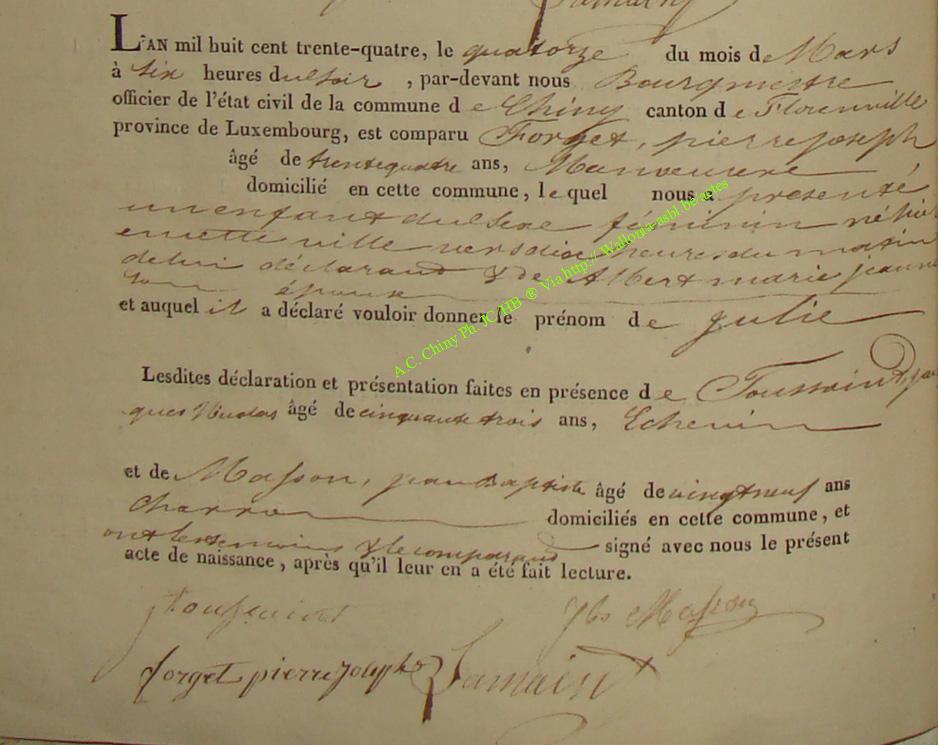 L'AN mil huit cent trente-quatre, le quatorze du mois de Mars
à six heures du soir, par-devant nous Bourgmestre
officier de l'état civil de la commune de Chiny canton de Florenville
province de Luxembourg, est comparu Forget, pierre joseph
âgé de trente quatre ans, Manoeuvre
domicilié en cette commune, le quel nous a presenté
un enfant du sexe féminin né hier
en cette ville vers dix heures du matin
de lui déclarand & de Albert marie jeanne
son épouse
et auquel il a déclaré vouloir donner le prénom de julie
Lesdites déclaration et présentation faites en présence de Toussaint, jac
ques Nicolas âgé de cinquante trois ans, Echevin
et de Masson, jean Baptiste âgé de vingt neuf ans
charron domiciliés en cette commune, et
ont les temoins & le comparand signé avec nous le présent
acte de naissance, après qu'il leur en a été fait lecture.
Toussaint Jbs Masson
forget pierre joseph
A.C. Chiny Ph. JC/HB ® Via http://Wallonia-asbl.be/actes